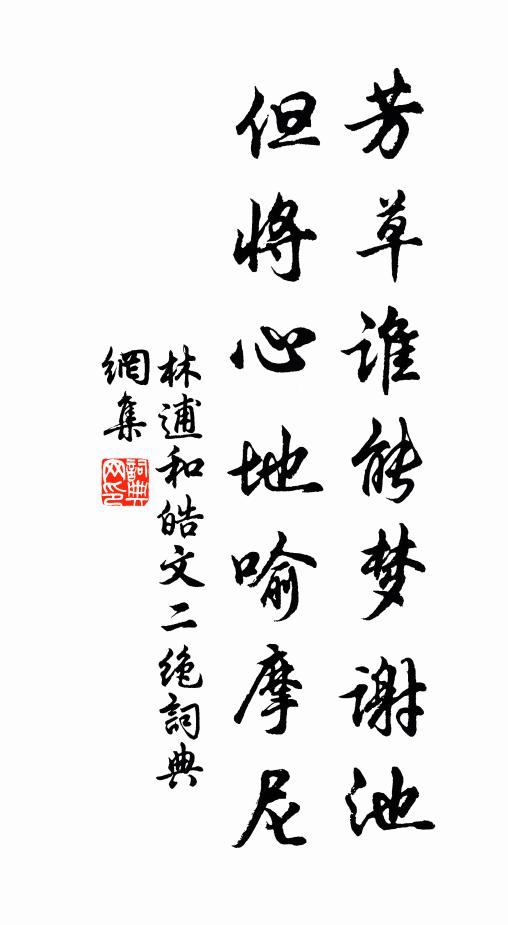 芳草谁能梦谢池
但将心地喻摩尼
林逋和皓文二绝詞典
網集
詞典
网印